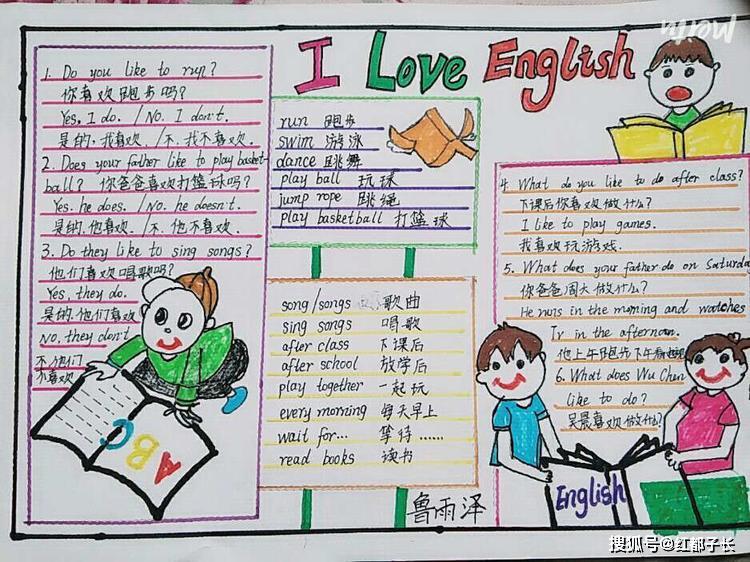 I Love English
1. Do you like to run?
你喜欢跑步吗?
Yes, I do. /No. I don't.
是的,我喜欢. /不,我不喜欢.
2. Does your father like to play basket-
ball? 你爸爸喜欢打篮球吗?
Yes. he does. /No. he doesn't.
是的.他喜欢. /不.他不喜欢.
3. Do they like to sing songs?
他们喜欢唱歌吗?
Yes, they do.
是的.他们喜欢
No, they don't
不.他们
不喜欢
ABC
run 跑步
swim 游泳
dance 跳舞
play ball 玩球
jump rope 跳绳
play basketball 打篮球
song/songs 歌曲
sing songs 唱歌
after class 下课后
after school 放学后
play together 一起玩
every morning 每天早上
wait for... 等待......
read books 读书
鲁雨泽
4. What do you like to do after class?
下课后你喜欢做什么?
I like to play games.
我喜欢玩游戏.
5. What does your father do on Saturda
你爸爸周六做什么?
He runs in the morning and watches
Tv in the afternoon.
他上午跑步下午看电视
6. What does Wu Chen
like to do?
吴晨喜欢做什么?
English
搜狐号@红都子长